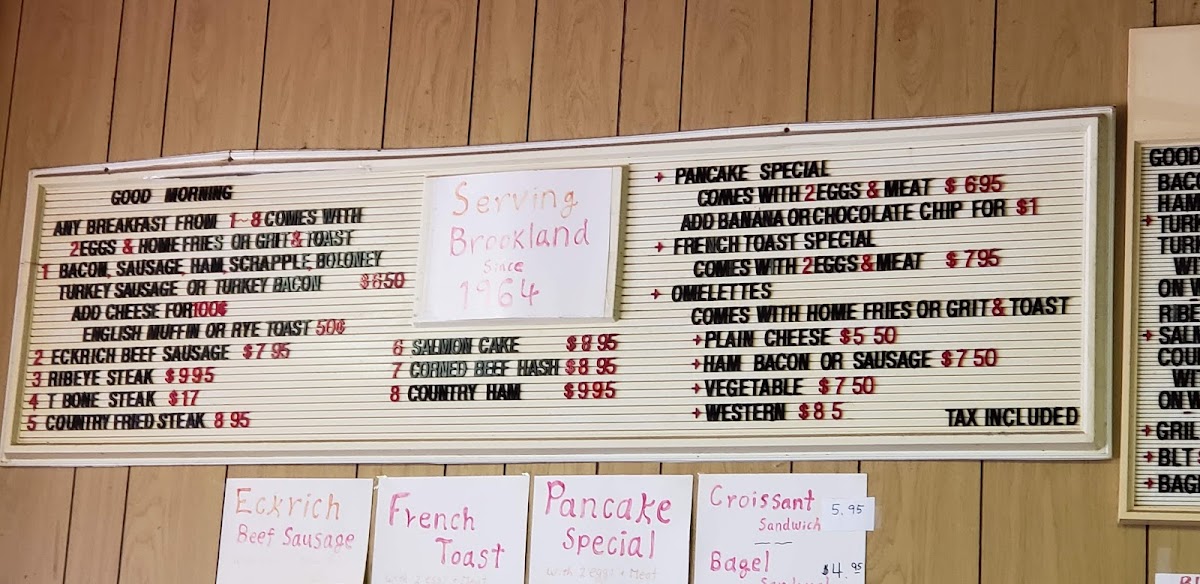 GOOD MORNING
ANY BREAKFAST FROM 1~8 COMES WITH
2EGGS & HOMEFRIES OR GRIT & TOAST
1 BACON, SAUSAGE, HAM, SCRAPPLE, BOLONEY
TURKEY SAUSAGE OR TURKEY BACON $650
ADD CHEESE FOR 100¢
ENGLISH MUFFIN OR RYE TOAST 50¢
2 ECKRICH BEEF SAUSAGE $7 95
3 RIBEYE STEAK $995
4 T BONE STEAK $17
5 COUNTRY FRIED STEAK 8 95
Serving
Brookland
Since
1964
6 SALMON CAKE $8 95
7 CORNED BEEF HASH $8 95
8 COUNTRY HAM $995
PANCAKE SPECIAL
COMES WITH 2EGGS & MEAT $695
ADD BANANA OR CHOCOLATE CHIP FOR $1
FRENCH TOAST SPECIAL
COMES WITH 2EGGS & MEAT $795
OMELETTES
COMES WITH HOME FRIES OR GRIT & TOAST
PLAIN CHEESE $5 50
HAM BACON OR SAUSAGE $7 50
VEGETABLE $7 50
WESTERN $8 5
TAX INCLUDED
Eckrich
Beef Sausage
French
Toast
with 2 eggs + Meat
Pancake
Special
with 2 eggs + Meat
Croissant
Sandwich
5.95
Bagel
$4.95
GOOD
BAC
HAM
TUR
TUR
WI
ON W
RIBE
SAL
COU
WI
ON W
GRIL
BLT
BAG